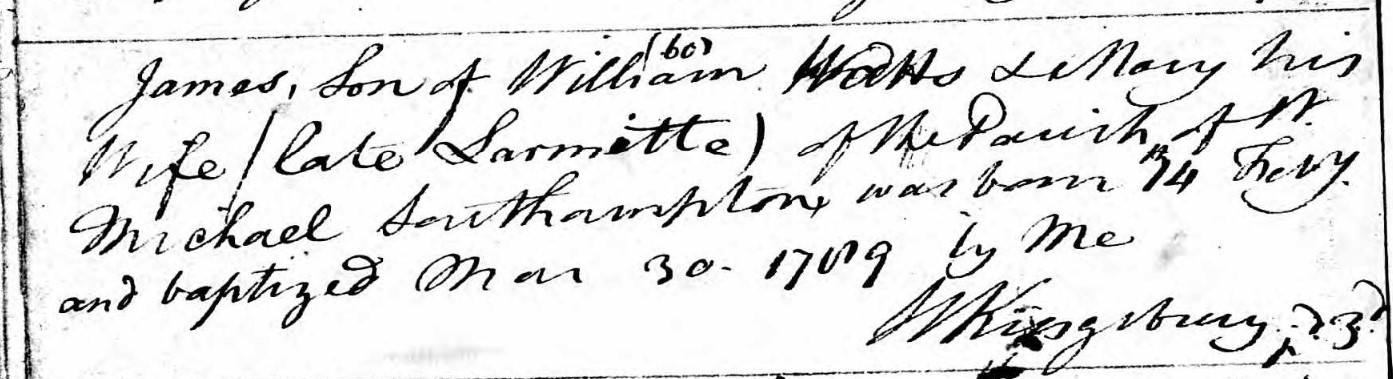 James, Son of William Watts & Mary his
Wife (late Larmette) of the Parish of St.
Michael Southampton, was born 14 Feby.
and baptized Mar 30. 1789 by Me
W Kingsbury